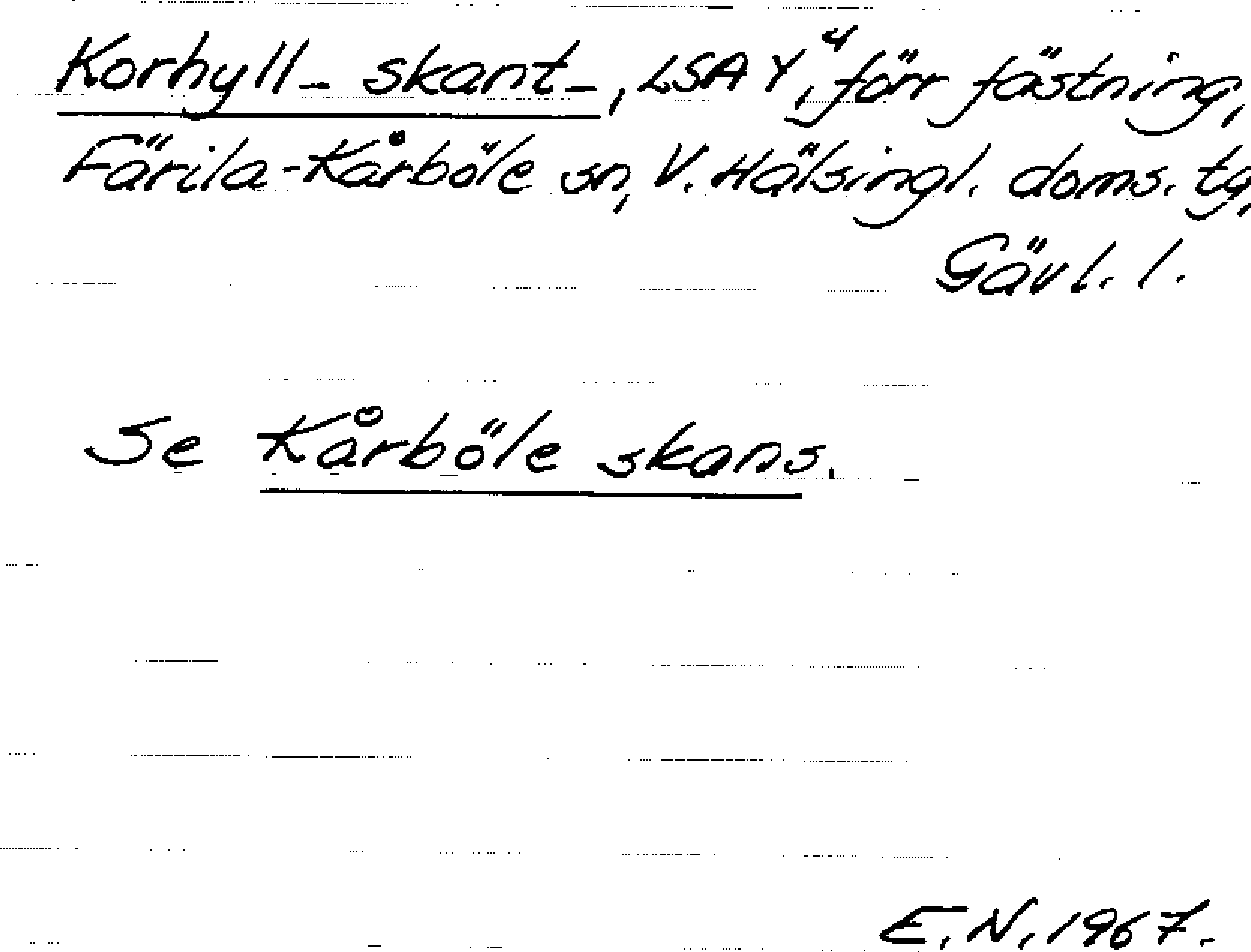 Korhyll- skant-, LSA Y⁴, förr fästning,
Färila-Kårböle sn, V. Hälsingl. doms. tg,
Gävl. l.
Se Kårböle skans.
E.N. 1967.